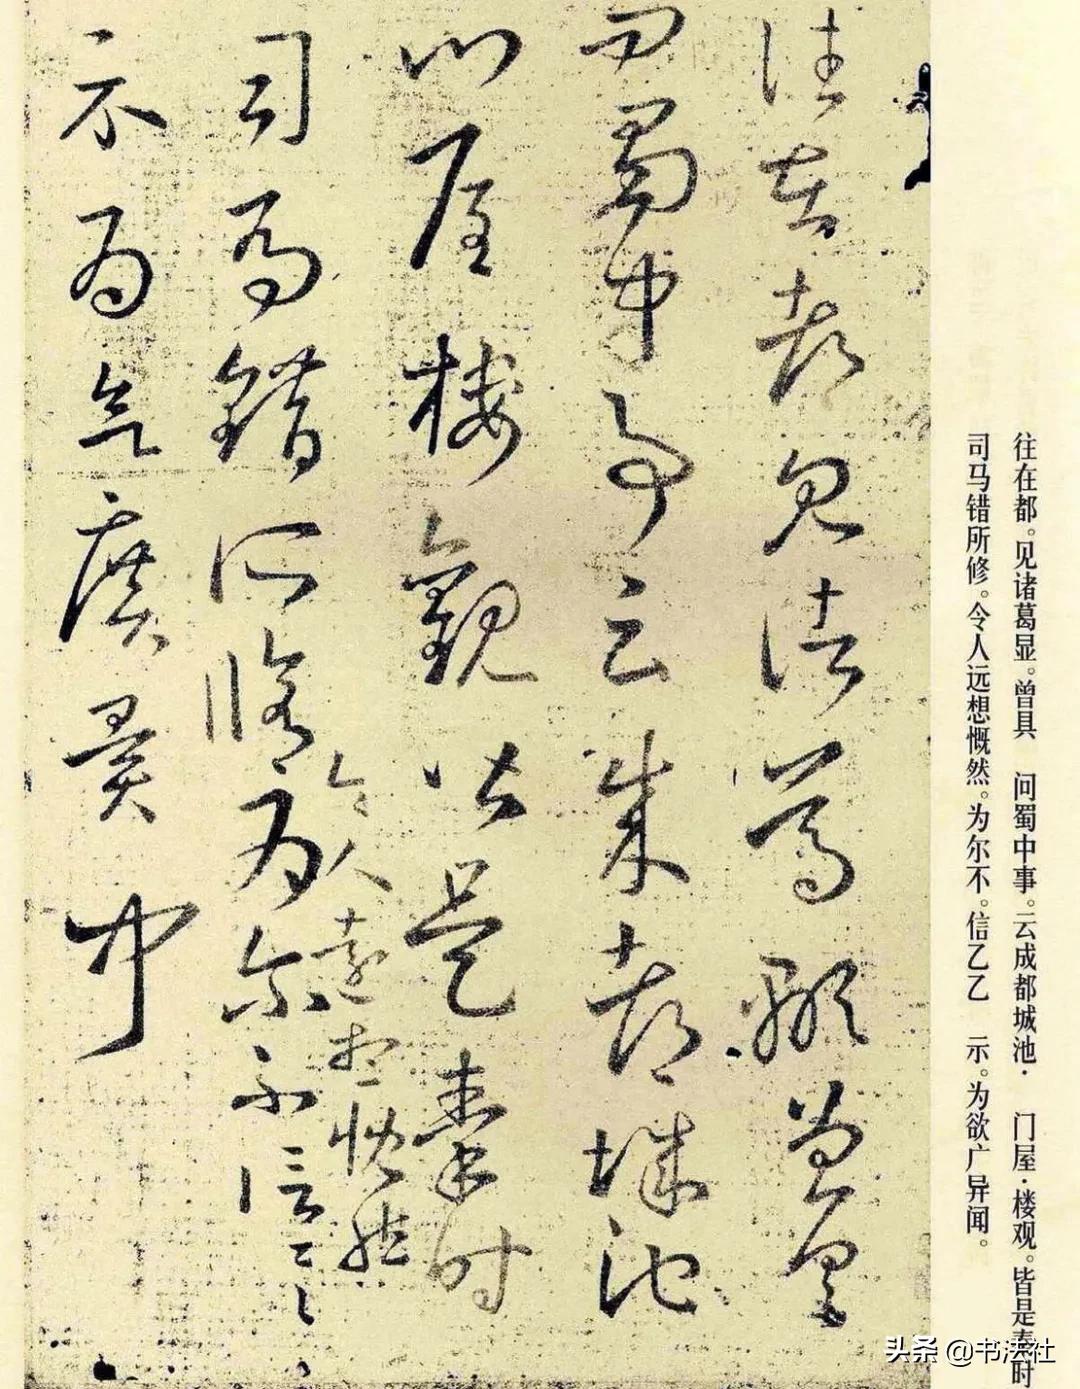 往在都见诸葛显曾具
问蜀中事云成都城池
门屋楼观皆是秦时
司马错所修令人远想慨然为尔不信乙乙
示为欲广异闻
往在都。见诸葛显。曾具 问蜀中事。云成都城池· 门屋·楼观。皆是秦时
司马错所修。令人远想慨然。为尔不。信乙乙 示。为欲广异闻。
头条 @书法社